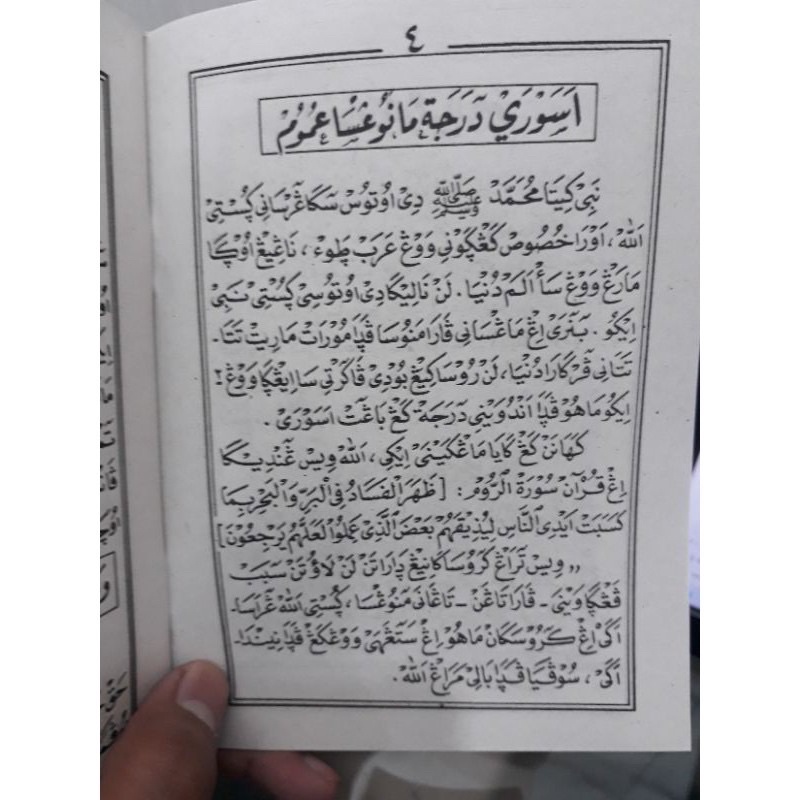 ٤
اَسَوْرَيْ دَرَجَة مَانُوْڠْسَا عُمُوْمْ
نَبِيْ كِيْتَا مُحَمَّدْ ﷺ دِيْ اُوْتُوْسْ سَڪَا ڠَرْسَانِيْ ڮُسْتِيْ
اَللهْ، اَوْرَا خُصُوْصْ كَڠْڮَوْنِيْ وَوْڠْ عَرَبْ ڟَوْءْ، نَاڠِيْڠْ اُوْڮَا
مَارَڠْ وَوْڠْ سَأْ اَلَمْ دُنْيَا. لَنْ نَالِيْڪَا دِيْ اُوْتُوْسَيْ ڮُسْتِيْ نَبِيْ
اِيْكُوْ. بَنَرَىْ اِڠْ مَاڠْسَانَيْ ڤَارَا مَنُوْسَا ڤَڊَا مُوْرَاتْ مَارِيْتْ تَتَا-
تَتَانَيْ ڤَرْكَارَا دُنْيَا، لَنْ رُوْسَاكَيْڠْ بُوْدِيْ ڤَاكَرْتِيْ سَاايْڠْڮَا وَوْڠ٢
اِيْكُوْ مَاهُوْ ڤَڊَا اَنْدُوَيْنِيْ دَرَجَةْ كَڠْ بَاڠَتْ اَسَوْرَىْ.
كَهَانَنْ كَڠْ كَايَا مَاڠْكَيْنَيْ اِيْكِيْ، اَللهْ وِيْسْ ڠَنْدِيْڪَا
اِڠْ قُرْآنْ سُوْرَةْ الرُّوْمْ: [ظَهَرَ الْفَسَادُ فِي الْبَرِّ وَالْبَحْرِ بِمَا
كَسَبَتْ اَيْدِي النَّاسِ لِيُذِيْقَهُمْ بَعْضَ الَّذِيْ عَمِلُوْا لَعَلَّهُمْ يَرْجِعُوْنَ]
„ وِيْسْ تَرَاڠْ كَرُوْسَاكَانَيْڠْ ڊَارَاتَنْ لَنْ لَاؤُتَنْ سَبَبْ
ڤَڠْڮَاوَيْنَيْ - ڤَارَا تَاڠَنْ - تَاڠَانَيْ مَنُوْڠْسَا، ڮُسْتِيْ اَللهْ ڠْرَاسَا-
اَكَيْ اِڠْ كَرُوْسَكَانْ مَاهُوْ اِڠْ سَتَڠَهَيْ وَوْڠْكَڠْ ڤَڊَا نِيْنْدَا-
اَكَيْ، سُوْڤَيَا ڤَڊَا بَالِيْ مَرَاڠْ اَللهْ.